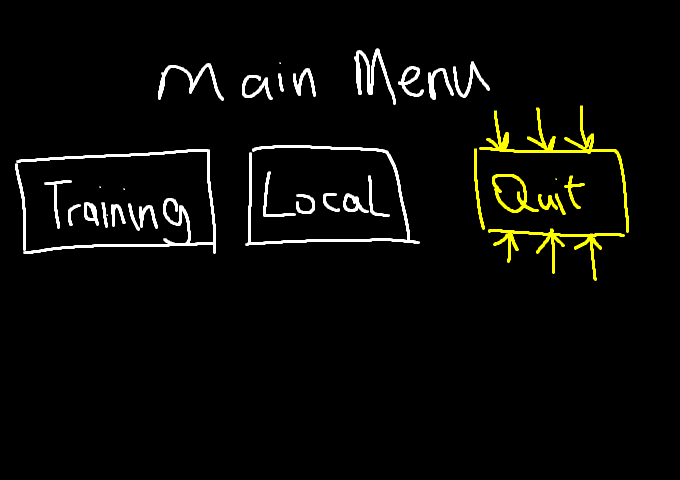 Main Menu
Training Local Quit